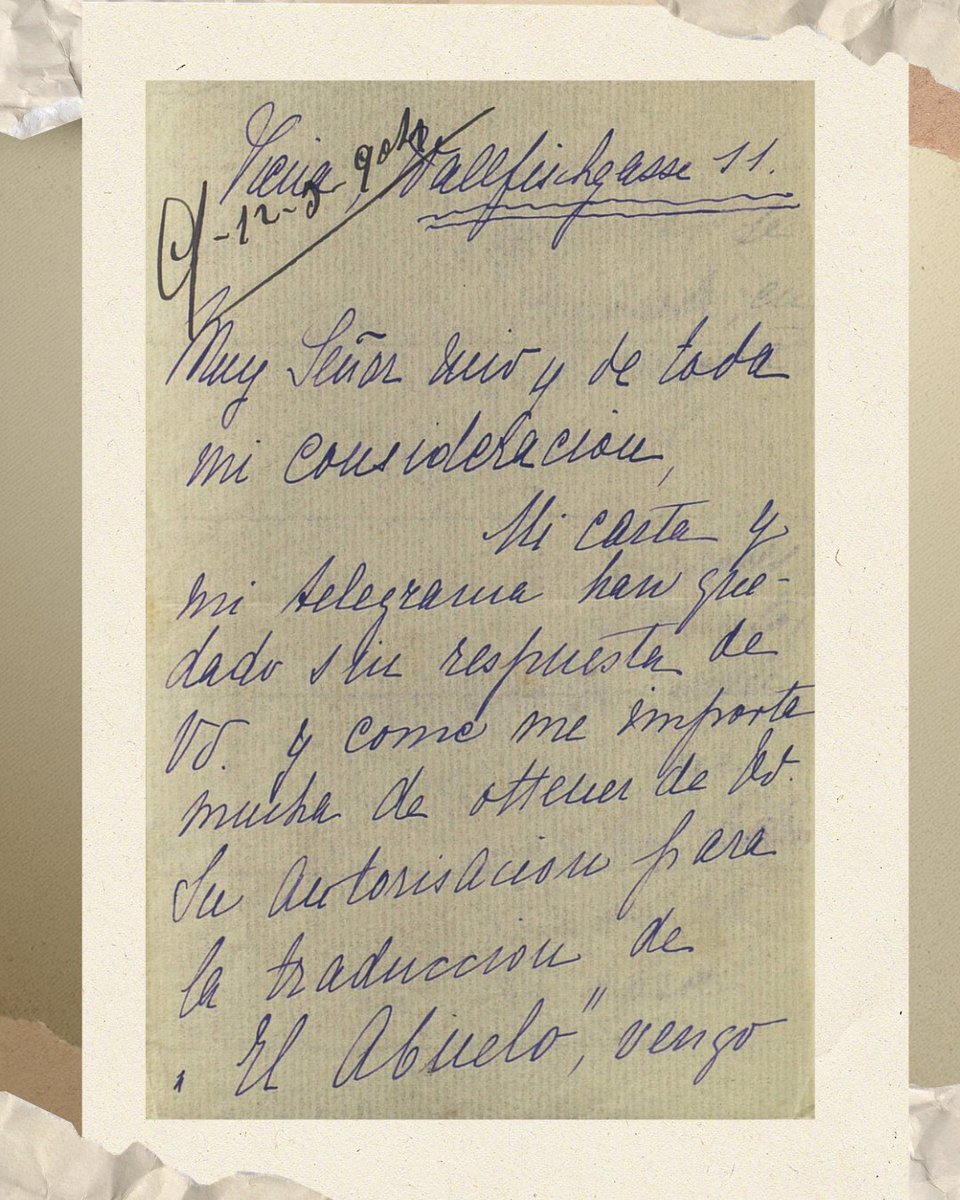 Viena, Wallfischgasse 11.
Muy Señor mio y de toda
mi consideracion,
Mi carta y
mi telegrama han que-
dado sin respuesta de
Vd. y como me importa
mucha de ottener de Vd.
su autorisacion para
la traduccion de
„El Abuelo”, vengo